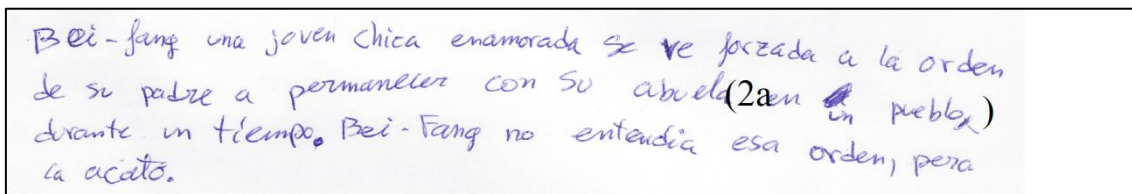 Bei-fang una joven chica enamorada se ve forzada a la orden
de su padre a permanecer con su abuela (2a en un pueblo)
durante un tiempo. Bei-Fang no entendia esa orden, pero
la acató.